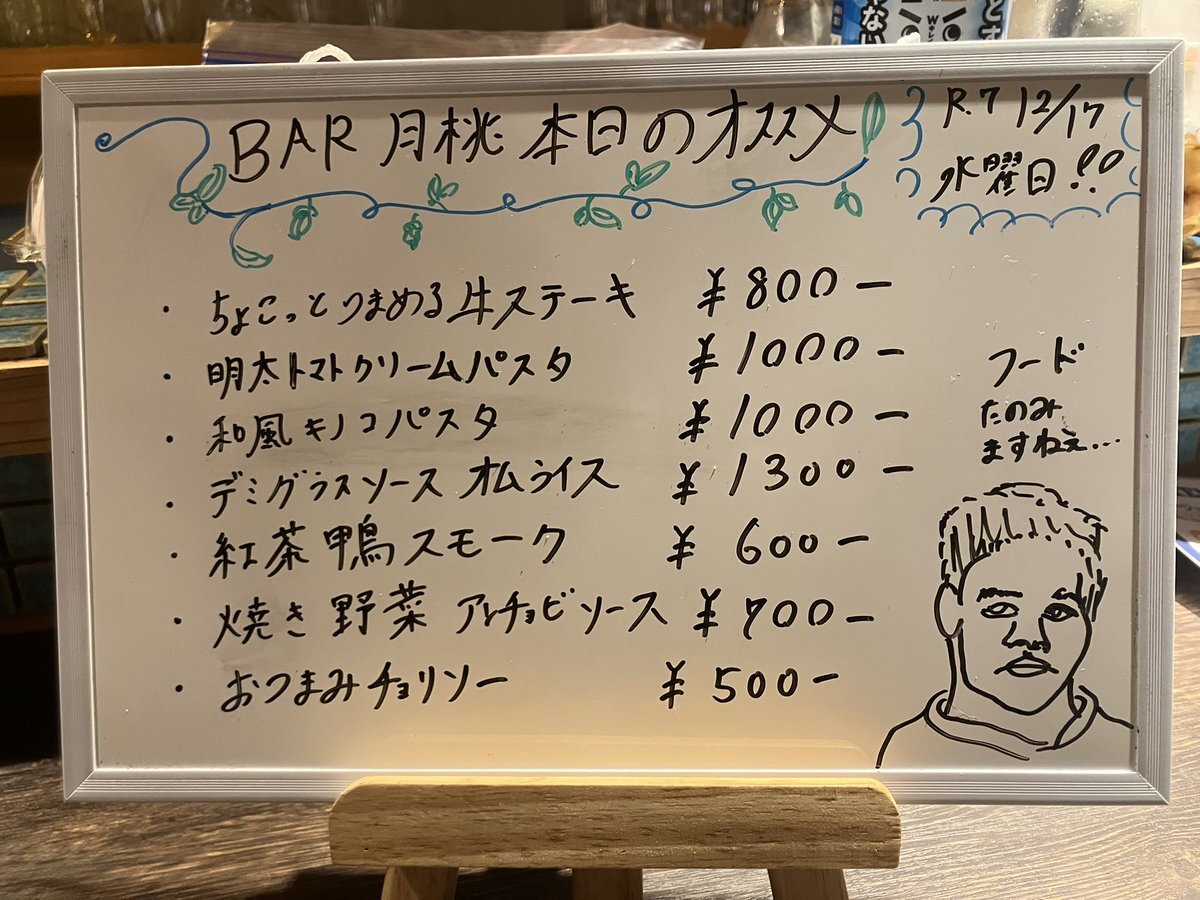 BAR 月桃 本日のオススメ
R.7 12/17
水曜日!!
・ちょこっとつまめる牛ステーキ ¥800ー
・明太トマトクリームパスタ ¥1000ー
・和風キノコパスタ ¥1000ー
・デミグラスソース オムライス ¥1300ー
・紅茶鴨スモーク ¥600ー
・焼き野菜 アンチョビソース ¥700ー
・おつまみチョリソー ¥500ー
フード
たのみ
ますねぇ…